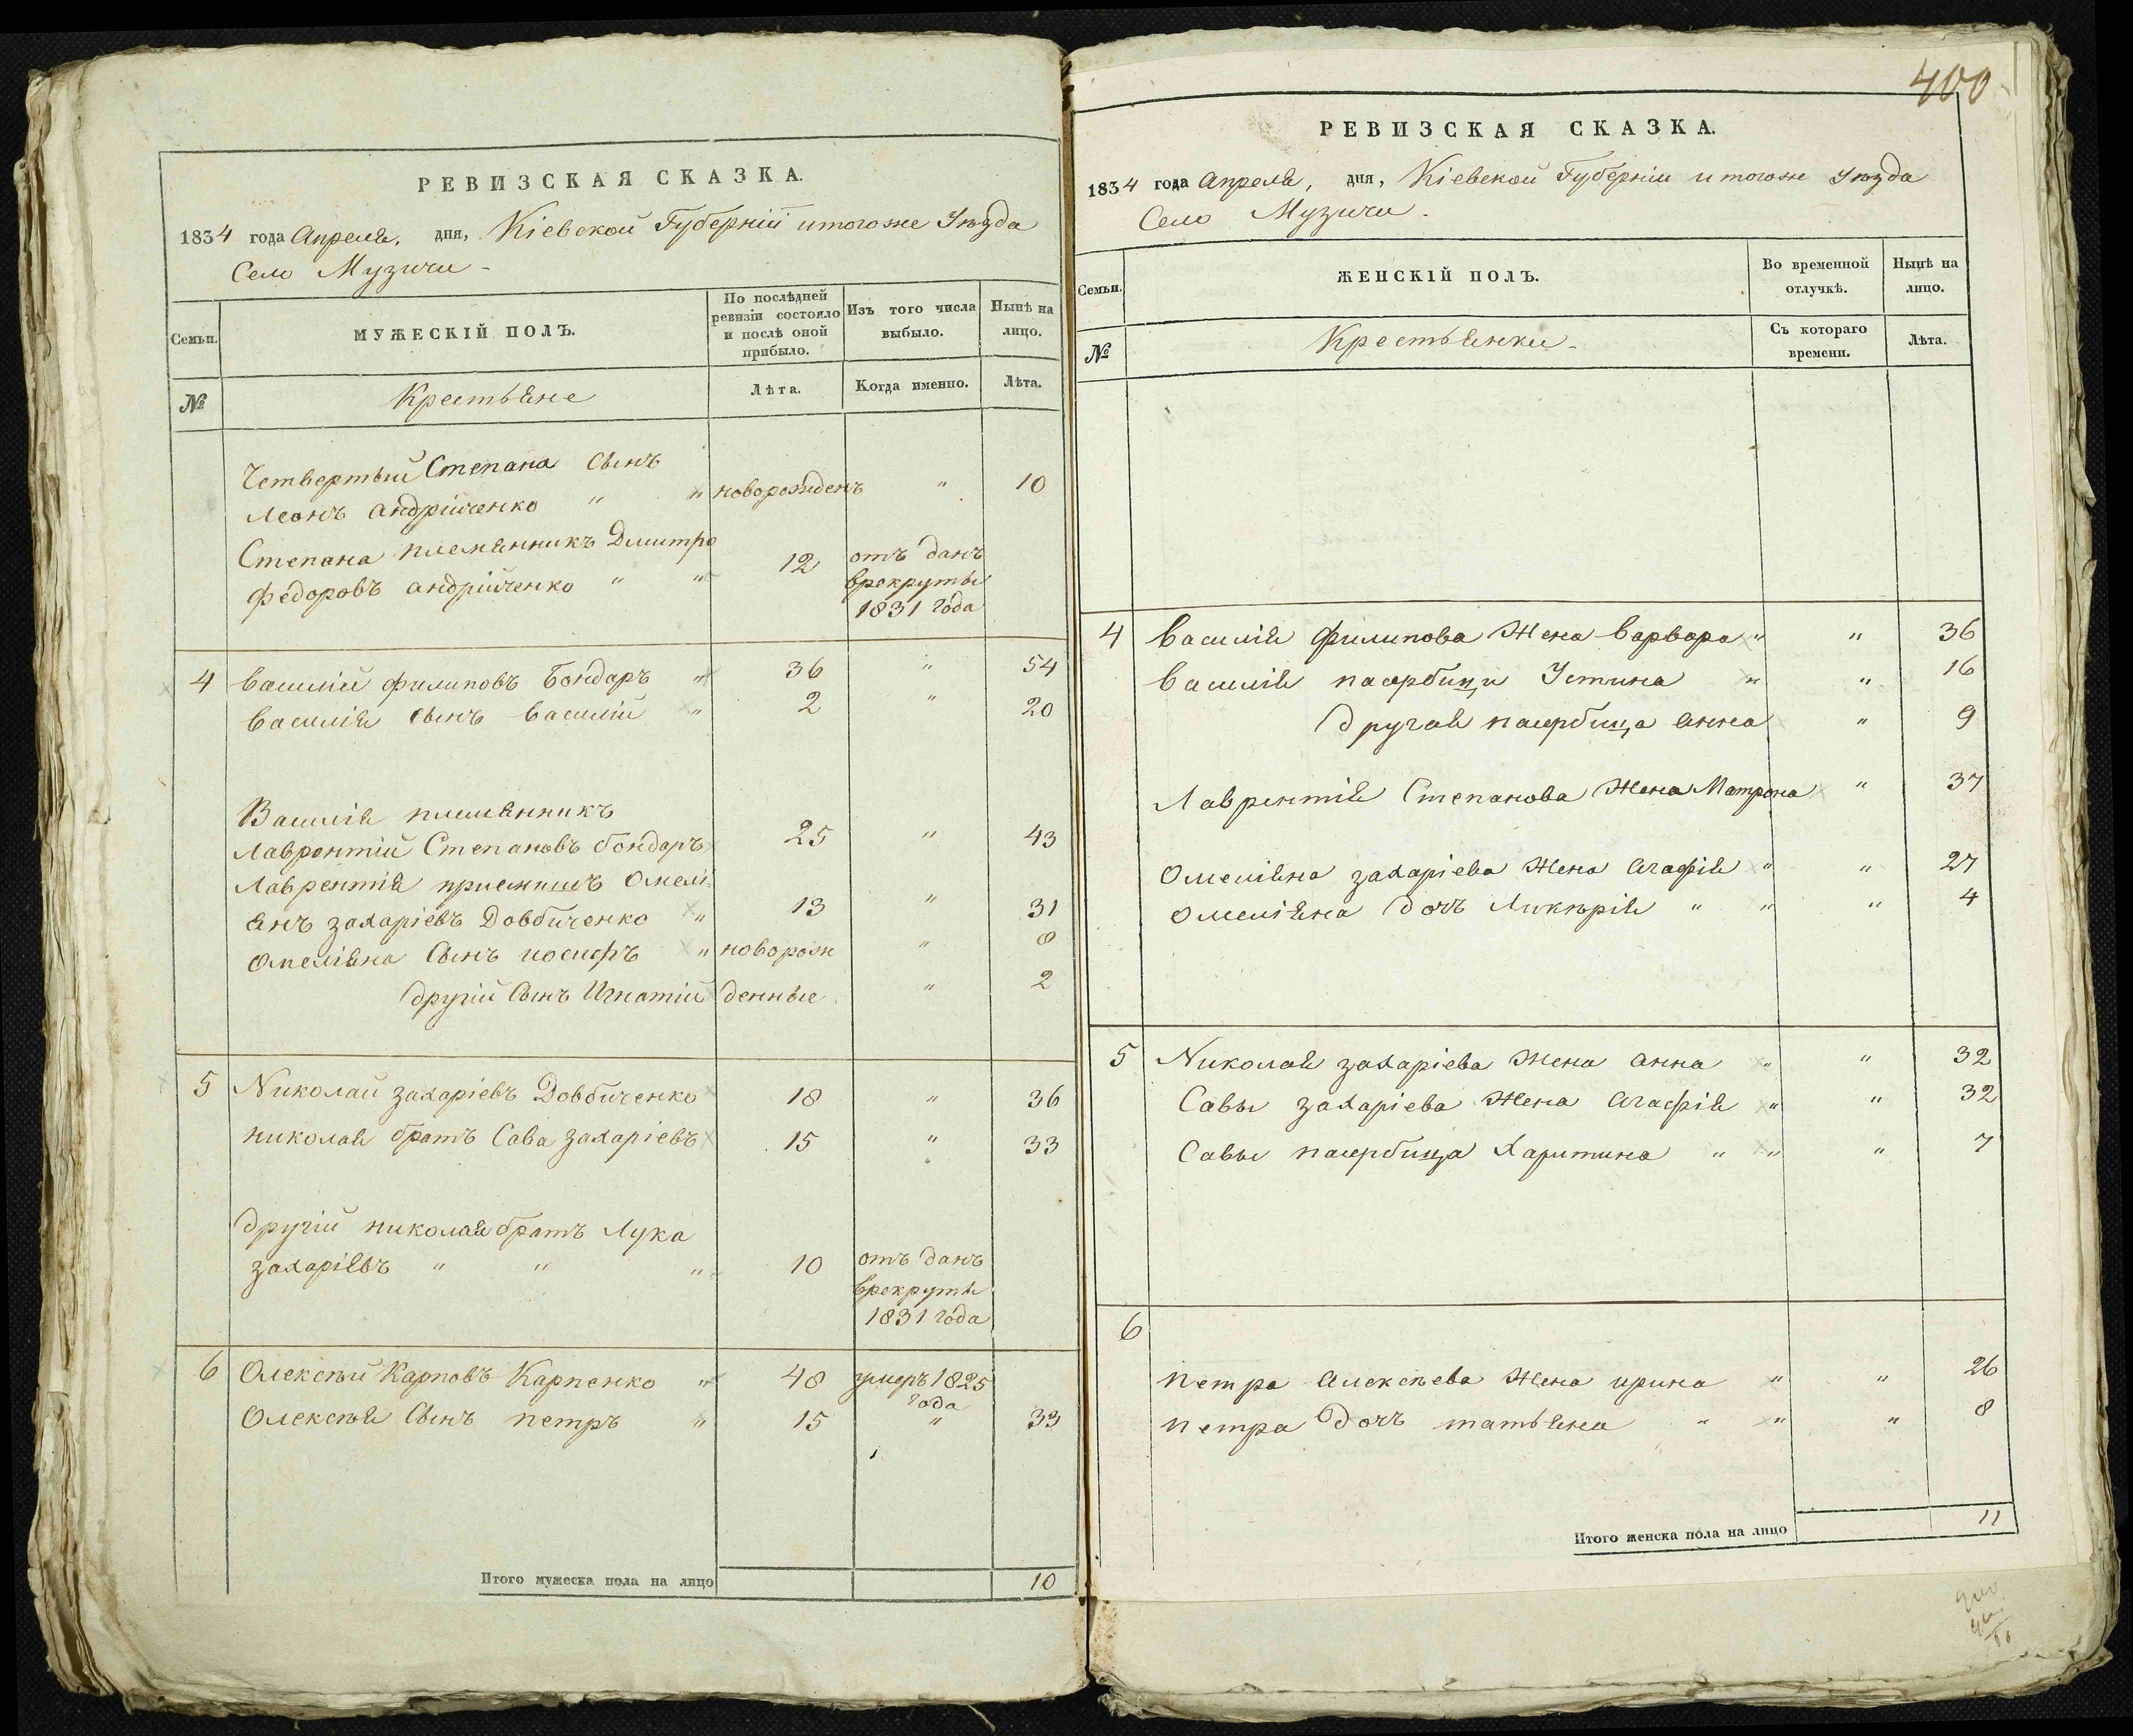 РЕВИЗСКАЯ СКАЗКА.
1834 года Апреля, дня, Кіевской Губерніи итогоже Уѣзда
Село Музичи -
Семьи.
МУЖЕСКІЙ ПОЛЪ.
По послѣдней
ревизіи состояло
и послѣ оной
прибыло.
Изъ того числа
выбыло.
Нынѣ на
лицо.
№
Крестьяне
Лѣта.
Когда именно.
Лѣта.
Четвертый Степана Сынъ
Леонъ андрійченко " " новорожденъ " 10
Степана племянникъ Дмитро
федоровъ андрійченко " " 12 отъ данъ
врекруты
1831 года
4 василій филиповъ Бондаръ " 36 " 54
василія сынъ василій " 2 " 20
Василія племянникъ
Лаврентій Степановъ бондаръ 25 " 43
Лаврентія приемишъ Омелі
янъ захаріевъ Довбиченко " 13 " 31
Омеліяна Сынъ иосифъ " новорож " 8
другій Сынъ Игнатій денные " 2
5 Николай захаріевъ Довбиченко 18 " 36
николая братъ Сава захаріевъ 15 " 33
другій николая братъ Лука
захаріевъ " " " 10 отъ данъ
врекруты
1831 года
6 Олексѣй Карповъ Карпенко " 48 умеръ 1825
года
Олексѣя Сынъ петръ " 15 " 33
Итого мужеска пола на лицо 10
400
РЕВИЗСКАЯ СКАЗКА.
1834 года Апреля, дня, Кіевской Губерніи итогоже Уѣзда
Село Музичи -
Семьи.
ЖЕНСКІЙ ПОЛЪ.
Во временной
отлучкѣ.
Нынѣ на
лицо.
№
Крестьянки -
Съ котораго
времени.
Лѣта.
4 василія филипова Жена варвара " " 36
василія пасербищи Устина " " 16
другая пасербища анна " 9
Лаврентія Степанова Жена Матрона " 37
Омеліяна захаріева Жена Агафія " " 27
омеліяна дочъ Ликѣрія " " " 4
5 Николая захаріева Жена анна " " 32
Савы захаріева Жена Агафія " " 32
Савы пасербища Харитина " " " 7
6
петра алексѣева Жена ирина " " 26
петра дочъ татьяна " " " 8
Итого женска пола на лицо 11